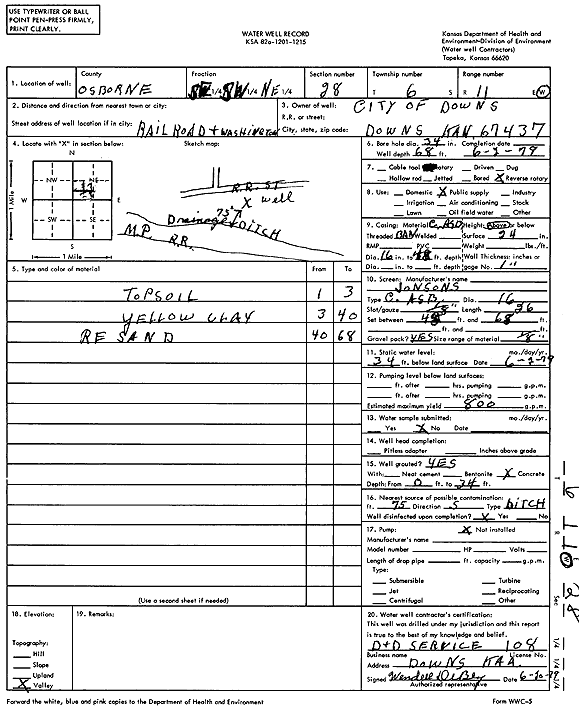 USE TYPEWRITER OR BALL
POINT PEN-PRESS FIRMLY,
PRINT CLEARLY.
WATER WELL RECORD
KSA 82a-1201-1215
Kansas Department of Health and
Environment-Division of Environment
(Water well Contractors)
Topeka, Kansas 66620
1. Location of well: County OSBORNE Fraction SW 1/4 NE 1/4 Section number 28 Township number 6 S Range number R 11 E W
2. Distance and direction from nearest town or city:
Street address of well location if in city: RAILROAD + WASHINGTON
3. Owner of well: CITY OF DOWNS
R.R. or street:
City, state, zip code: DOWNS KAN 67437
4. Locate with "X" in section below:
Sketch map:
N
NW NE
W E
SW SE
S
1 Mile
1 Mile
R.R. ST
X well
75'
Drainage DITCH
M.P.
R.R.
5. Type and color of material From To
TOPSOIL 1 3
YELLOW CLAY 3 40
RE SAND 40 68
(Use a second sheet if needed)
6. Bore hole dia. 34 in. Completion date
Well depth 68 ft. 6-2-79
7. Cable tool Rotary Driven Dug
Hollow rod Jetted Bored X Reverse rotary
8. Use: Domestic X Public supply Industry
Irrigation Air conditioning Stock
Lawn Oil field water Other
9. Casing: Material C. ASB Height: Above or below
Threaded Welded Surface 24 in.
RMP PVC Weight lbs./ft.
Dia. 16 in. to 48 ft. depth Wall Thickness: inches or
Dia. in. to ft. depth gage No. 1"
10. Screen: Manufacturer's name
JONSONS
Type C. ASB. Dia. 16
Slot/gauze Length 36
Set between 48 ft. and 68 ft.
ft. and ft.
Gravel pack? YES Size range of material 1/8"
11. Static water level: mo./day/yr.
34 ft. below land surface Date 6-2-79
12. Pumping level below land surfaces:
ft. after hrs. pumping g.p.m.
ft. after hrs. pumping g.p.m.
Estimated maximum yield 800 g.p.m.
13. Water sample submitted: mo./day/yr.
Yes X No Date
14. Well head completion:
Pitless adapter Inches above grade
15. Well grouted? YES
With: Neat cement Bentonite X Concrete
Depth: From 0 ft. to 34 ft.
16. Nearest source of possible contamination:
ft. 75 Direction S Type DITCH
Well disinfected upon completion? X Yes No
17. Pump: X Not installed
Manufacturer's name
Model number HP Volts
Length of drop pipe ft. capacity g.p.m.
Type:
Submersible Turbine
Jet Reciprocating
Centrifugal Other
18. Elevation:
Topography:
Hill
Slope
Upland
X Valley
19. Remarks:
20. Water well contractor's certification:
This well was drilled under my jurisdiction and this report
is true to the best of my knowledge and belief.
D+D SERVICE 108
Business name License No.
Address DOWNS KAA.
Signed Wendell DeBey Date 6-20-79
Authorized representative
T 6
R 11 W
Sec 28
1/4 1/4 1/4
Forward the white, blue and pink copies to the Department of Health and Environment
Form WWC-5